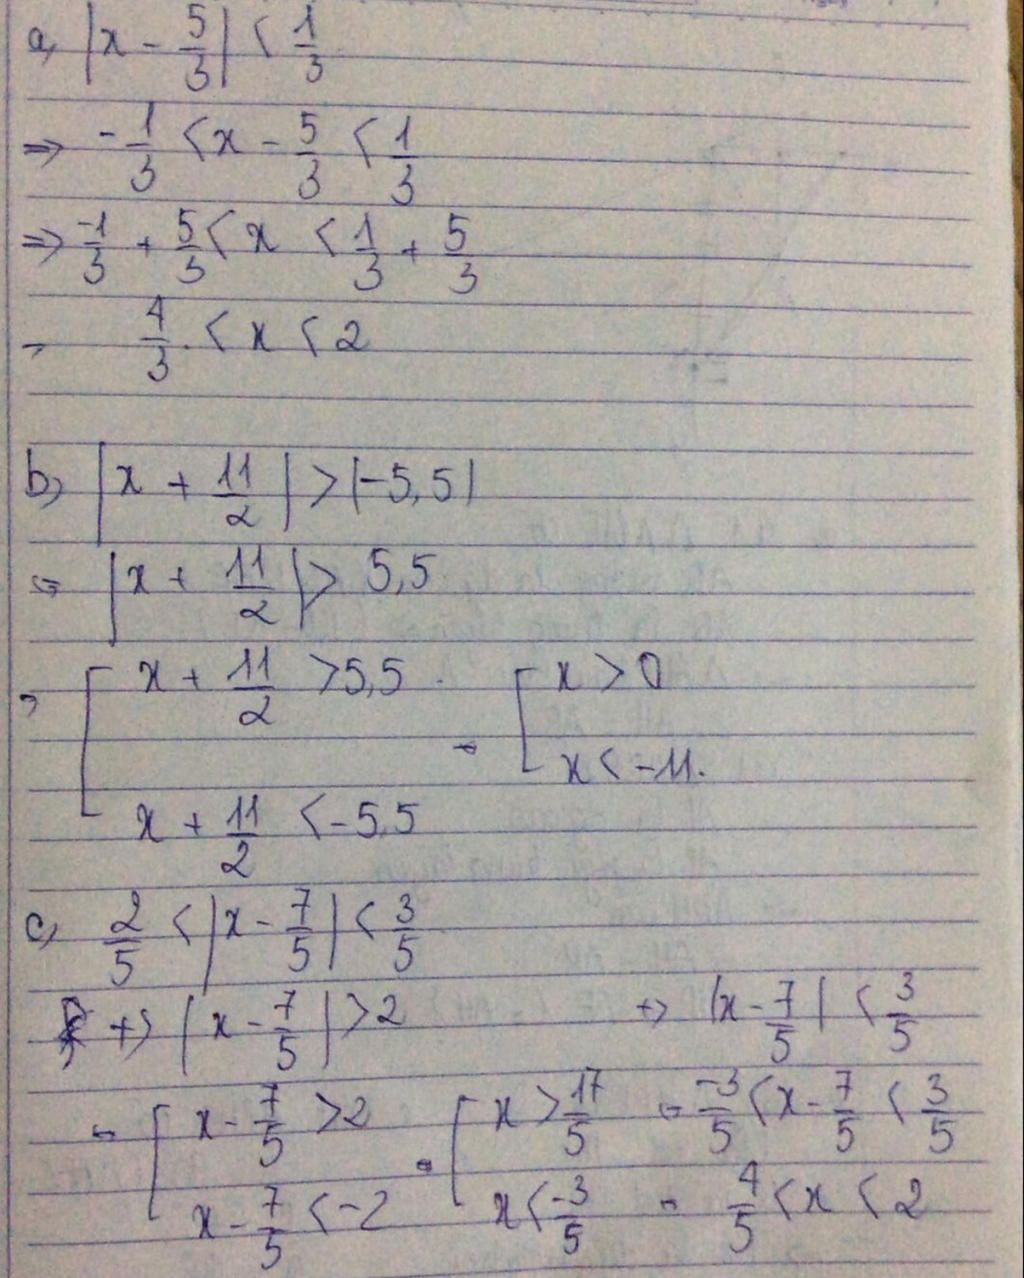 a, |x - 5/3| < 1/3
=> -1/3 < x - 5/3 < 1/3
=> -1/3 + 5/3 < x < 1/3 + 5/3
4/3 < x < 2
b, |x + 11/2| > |-5,5|
|x + 11/2| > 5,5
[ x + 11/2 > 5,5 [ x > 0
x + 11/2 < -5,5 x < -11.
c, 2/5 < |x - 7/5| < 3/5
+) |x - 7/5| > 2 +) |x - 7/5| < 3/5
[ x - 7/5 > 2 [ x > 17/5 = -3/5 < x - 7/5 < 3/5
x - 7/5 < -2 x < -3/5 = 4/5 < x < 2